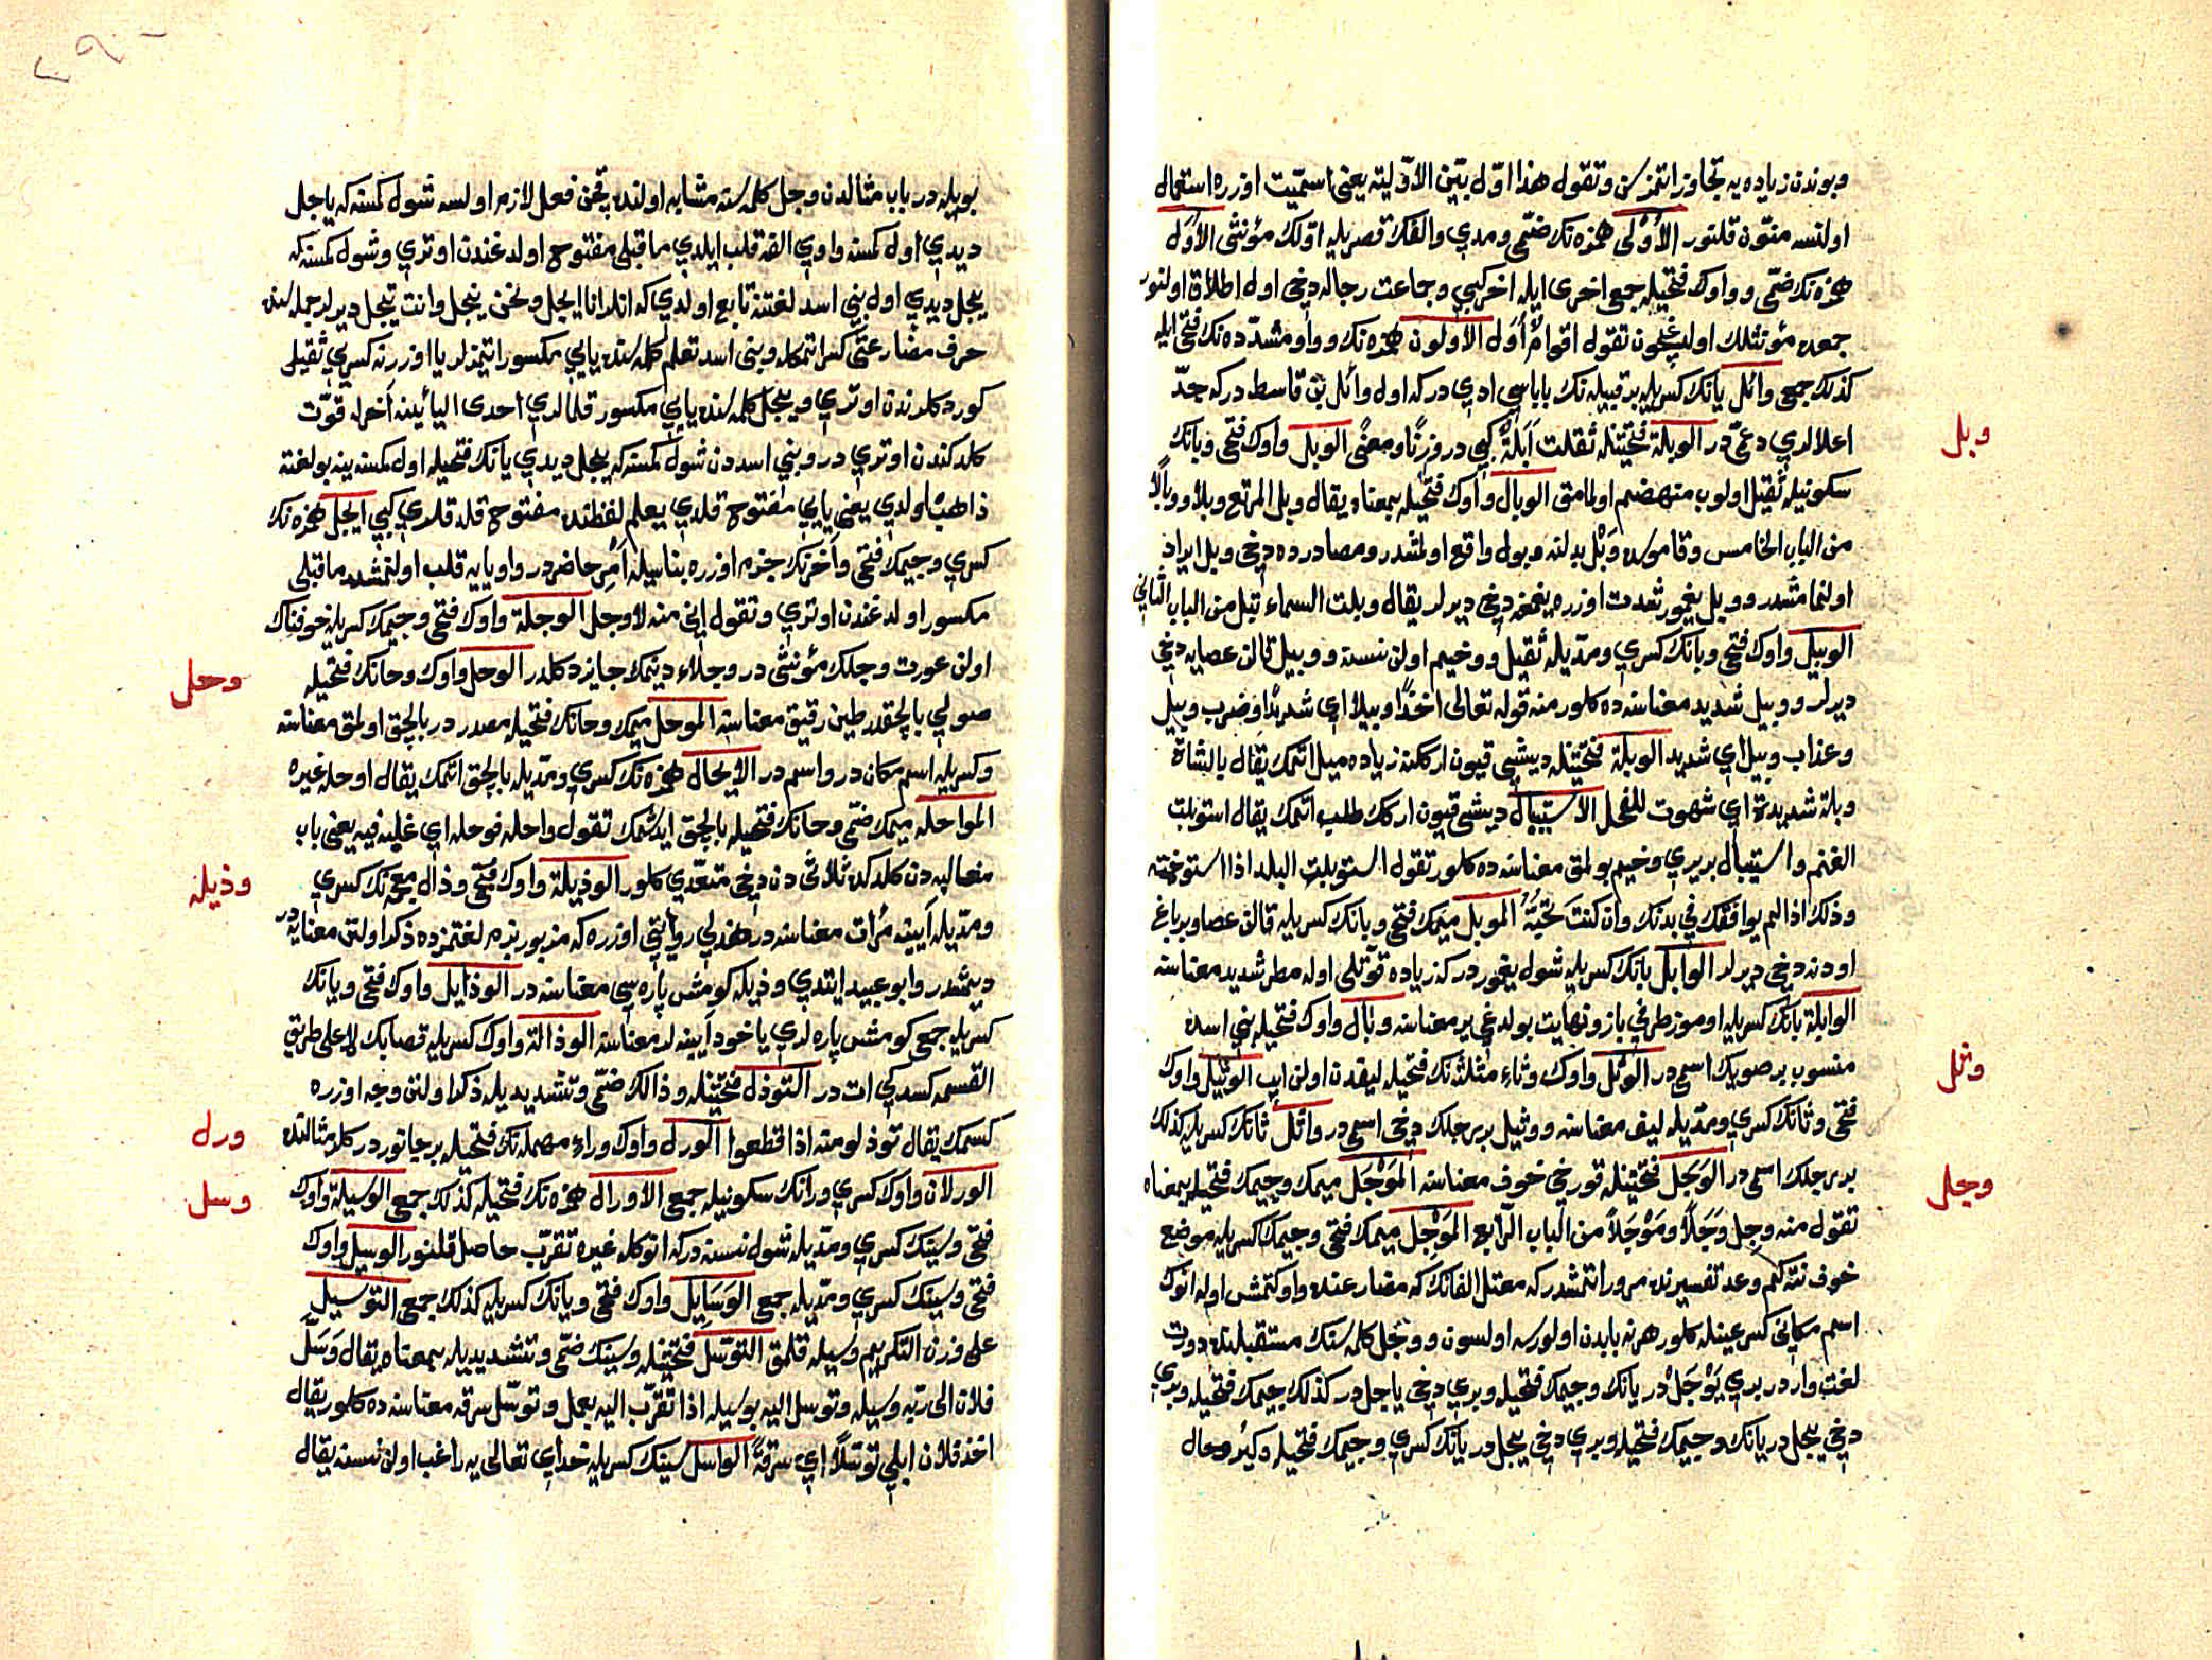 وبوندن زياده يه تجاوز اتمز سن وتقول هذا اول بيّن الاوّليّة يعني اسميّت اوزره استعمال
اولنسه منوّن قلنور الأُوْلى همزه نك ضمّي ومدي والفك قصريله اوّلك مؤنثى الأُوَل
همزه نك ضمّي وواوك فتحيله جمعى اخرى ايله اخر كبي وجماعت رجاله دخي اول اطلاق اولنور
جمعده مؤنثلك اولديغيچون تقول اقوام أُوَل الأوّلون همزه نك وواو مشدّده نك فتحى ايله
كذلك جمعى وائل يانك كسريله بر قبيله نك باباسى ادي دركه اول وائل بن قاسط دركه جدّ
وبل
اعلالري دعمّي در الوبلة فتحتينله ثقلت أبلة كبي در وزنًا ومعنًى الوبل واوك فتحى وبانك
سكونيله ثقيل اولوب منهضم اولمامق الوبال واوك فتحيله بمعناه يقال وبل المرتع وبلا ووبالًا
من الباب الخامس وقاموسده وَبْل بدلنه وبول واقع اولمشدر ومصادرده دخي وبل ايراد
اولنمامشدر ووبل يغمور شدت اوزره يغمغه دخي ديرلر يقال وبلت السماء تبل من الباب الثاني
الوبيل واوك فتحى وبانك كسري ومدّيله ثقيل ووخيم اولن نسنه ووبيل قالن عصايه دخي
ديرلر ووبيل شديد معناسنه ده كلور منه قوله تعالى اخذًا وبيلا اي شديدًا وضرب وبيل
وعذاب وبيل اي شديد الوبلة فتحتينله ديشى قيون اركنه زياده ميل اتمك يقال بالشاة
وبلة شديدة اي شهوت للفحل الاستيبال ديشى قيون اركك طلب اتمك يقال استوبلت
الغنم واستيبال بر يري وخيم بولمق معناسنه ده كلور تقول استوبلت البلد اذا استوخمته
وذلك اذا لم يوافقك في بدنك وان كنت تحبّه الموبل ميمك فتحى وبانك كسريله قالن عصا وبر باغ
اودنه دخي ديرلر الوابل بانك كسريله شول يغمور دركه زياده قوّتلى اوله مطر شديد معناسنه
الوابلة بانك كسريله اوموز طرفي بازو نهايت بولدغي ير معناسنه وبال واوك فتحيله بني اسده
وثل
منسوب بر صويك اسمى در الوثل واوك وثاء مثلثه نك فتحيله ليفدن اولن ايپ الوثيل واوك
فتحى وثانك كسري ومدّيله ليف معناسنه ووثيل بر رجلك دخي اسمى در واثل ثانك كسريله كذلك
وجل
بر رجلك اسمى در الوَجَل فتحتينله قورخى خوف معناسنه المَوْجَل ميمك وجيمك فتحيله بمعناه
تقول منه وجل وَجَلًا ومَوْجَلًا من الباب الرّابع المَوْجِل ميمك فتحى وجيمك كسريله موضع
خوف نته كم وعد تفسيرنده مرور اتمشدركه معتل الفانك كه مضارعنده واو كتمش اوله انوك
اسم مكاني كسر عينله كلور هر نه بابدن اولورسه اولسون ووَجَل كلمه سنك مستقبلنده دورت
لغت وار در بري يَوْجَلْ در يانك وجيمك فتحيله وبري دخي ياجل در كذلك جيمك فتحيله وبري
دخي ييجل در يانك وجيمك فتحيله وبري دخي ييجل در يانك كسري وجيمك فتحيله وكيرو حال
بويله در باب مثالدن وجل كلمه سنه مشابه اولنده قچن فعل لازم اولسه شول كمسنه كه ياجل
ديدي اول كمسنه واوي الفه قلب ايلدي ما قبلى مفتوح اولدغندن اوتري وشول كمسنه كه
ييجل ديدي اول بني اسد لغتنه تابع اولدي كه انلر انا ايجل ونحن نيجل وانت تيجل ديرلر جمله سنده
حرف مضارعتى كسر اتمكله وبني اسد تعلم كلمه سنده يايي مكسور ايتمزلر يا اوزرنه كسري ثقيل
كوردكلرندن اوتري وييجل كلمه سنده يايي مكسور قلدلري احدى اليائينه آخرله قوّت
كلدكندن اوتري در وبني اسددن شول كمسنه كه ييجل ديدي يانك فتحيله اول كمسنه ينه بو لغته
ذاهب اولدي يعني يايي مفتوح قلدي يعلم لفظنده مفتوح قلدقلري كبي ايجل همزه نك
كسري وجيمك فتحى وآخرنك جزم اوزره بناسيله امر حاضر در واو يايه قلب اولنمشدر ما قبلى
مكسور اولدغندن اوتري وتقول اني منه لأوجل الوجلة واوك فتحى وجيمك كسريله خوفناك
اولن عورت وجلك مؤنثى در وجلاء ديمك جايز دكلدر الوحل واوك وحانك فتحيله
وحل
صولي بالچقدر طين رقيق معناسنه الموحل ميمك وحانك فتحيله مصدر در بالچق اولمق معناسنه
وكسريله اسم مكان در واسم در الايحال همزه نك كسري ومدّيله بالچق اتمك يقال اوحله غيره
المواحله ميمك ضمّي وحانك فتحيله بالچق ايدشمك تقول واحله فوحله اي غلبه فيه يعني باب
مغالبه دن كلدكده ثلاثى دن دخي متعدّي كلور الوذيلة واوك فتحى وذال معجمه نك كسري
وذيله
ومدّيله آيينه مُرآت معناسنه در هذلي روايتي اوزره كه مزبور بزم لغتمزده ذكر اولنن معنايه در
ديمشدر وابو عبيد ايتدي وذيله كومش پاره سى معناسنه در الوذايل واوك فتحى ويانك
كسريله جمعى كومش پاره لري ياخود آيينه لر معناسنه الوذالة واوك كسريله قصابك لا على طريق
القسمه كسدكي ات در التوذل فتحتينله وذالك ضمّي وتشديديله ذكر اولنن وجه اوزره
كسمك يقال توذلو منه اذا قطعوا الورل واوك وراء مهمله نك فتحيله بر جانور در كلر مثالنده
ورل
الورلان واوك كسري ورانك سكونيله جمعى الاورال همزه نك فتحيله كذلك جمعى الوسيلة واوك
وسل
فتحى وسينك كسري ومدّيله شول نسنه دركه انوكله غيره تقرّب حاصل قلنور الوسيل واوك
فتحى وسينك كسري ومدّيله جمعى الوَسَايِل واوك فتحى ويانك كسريله كذلك جمعى التوسيل
على وزن التكريم وسيله قلمق التوسّل فتحتينله وسينك ضمّي وتشديديله بمعناه يقال وَسَّلَ
فلان الى ربّه وسيله وتوسل اليه بوسيله اذا تقرّب اليه بعمل وتوسّل سرقه معناسنه ده كلور يقال
اخذ فلان ابلي توسّلًا اي سرقةً الواسل سينك كسريله خداي تعالى يه راغب اولن نسنه يقال